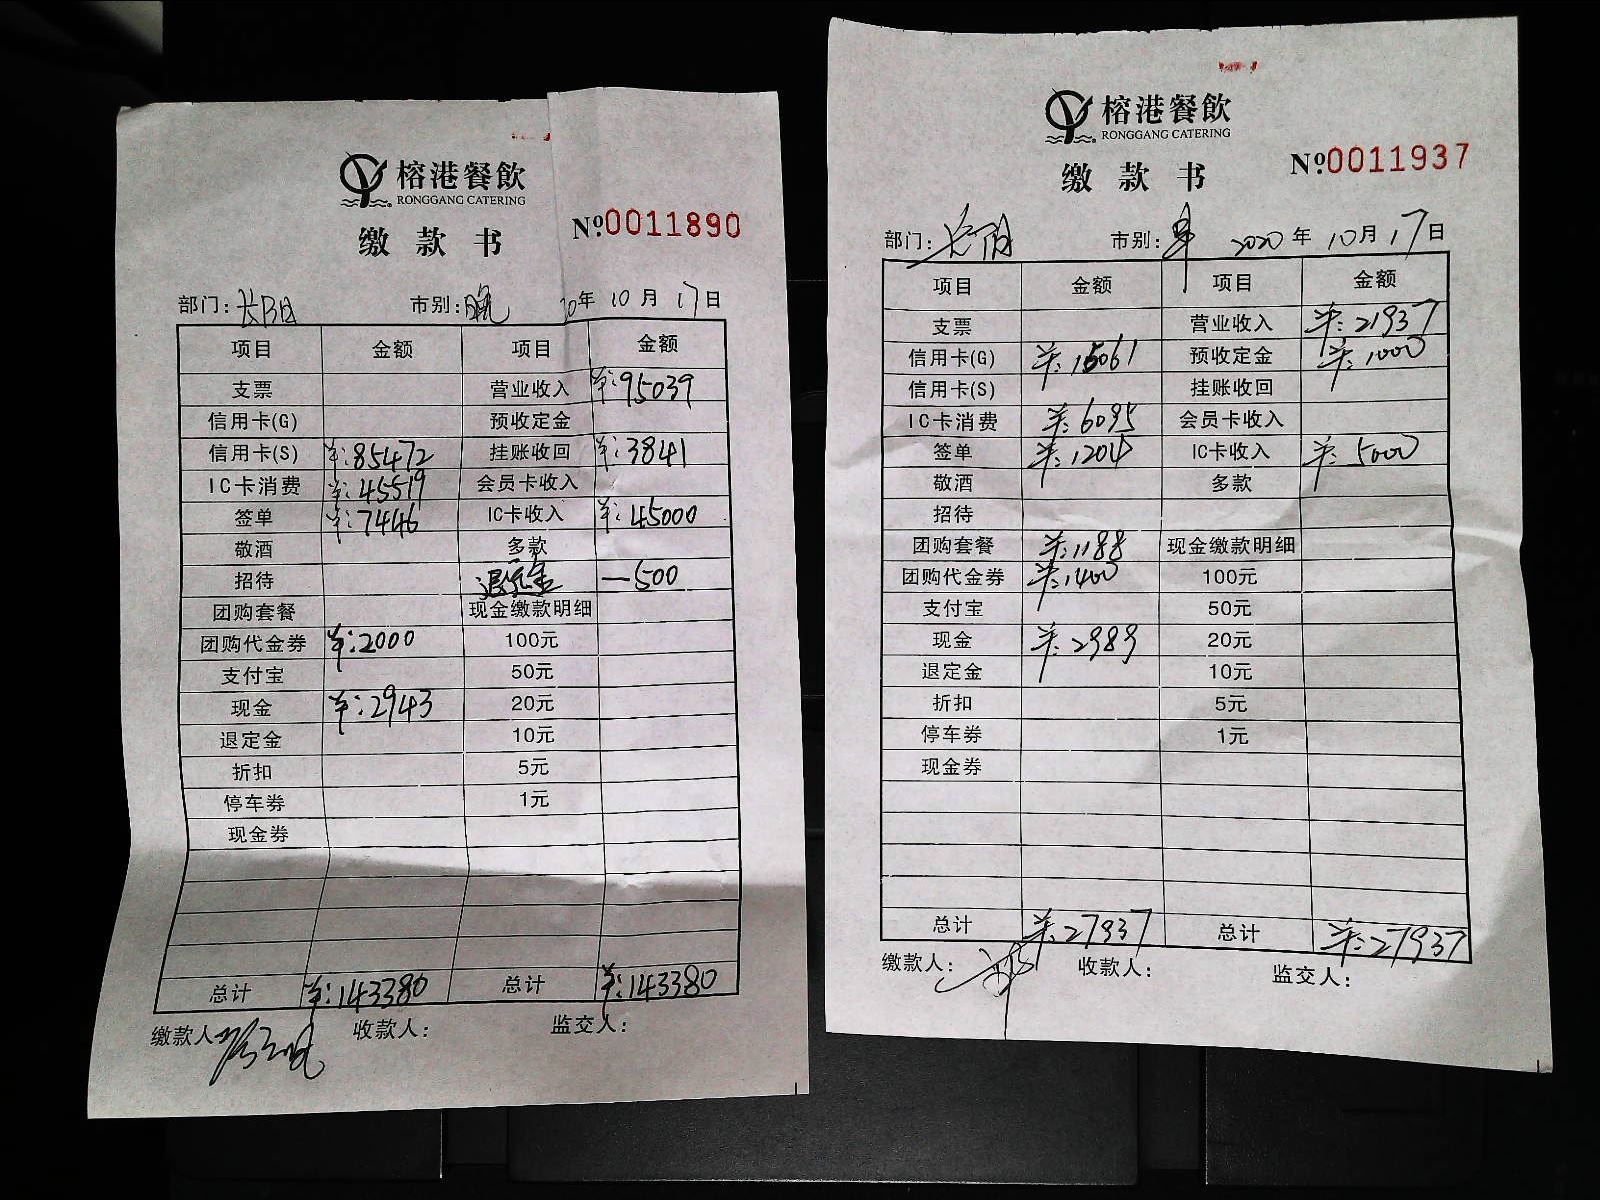 榕港餐飲
RONGGANG CATERING
缴款书
Nº:0011890
部门:长阳 市别:晚 20年10月17日
项目 金额 项目 金额
支票 营业收入 ¥:95039
信用卡(G) 预收定金
信用卡(S) ¥:85472 挂账收回 ¥:3841
IC卡消费 ¥:45519 会员卡收入
签单 ¥:7446 IC卡收入 ¥:45000
敬酒 多款
招待 退定金 —500
团购套餐 现金缴款明细
团购代金券 ¥:2000 100元
支付宝 50元
现金 ¥:2943 20元
退定金 10元
折扣 5元
停车券 1元
现金券
总计 ¥:143380 总计 ¥:143380
缴款人 收款人: 监交人:
榕港餐飲
RONGGANG CATERING
缴款书
Nº:0011937
部门:长阳 市别:早 2020年10月17日
项目 金额 项目 金额
支票 营业收入 ¥:21937
信用卡(G) ¥:15061 预收定金 ¥:1000
信用卡(S) 挂账收回
IC卡消费 ¥:6095 会员卡收入
签单 ¥:1204 IC卡收入 ¥:5000
敬酒 多款
招待
团购套餐 ¥:1188 现金缴款明细
团购代金券 ¥:1400 100元
支付宝 50元
现金 ¥:2989 20元
退定金 10元
折扣 5元
停车券 1元
现金券
总计 ¥:27937 总计 ¥:27937
缴款人: 收款人: 监交人: